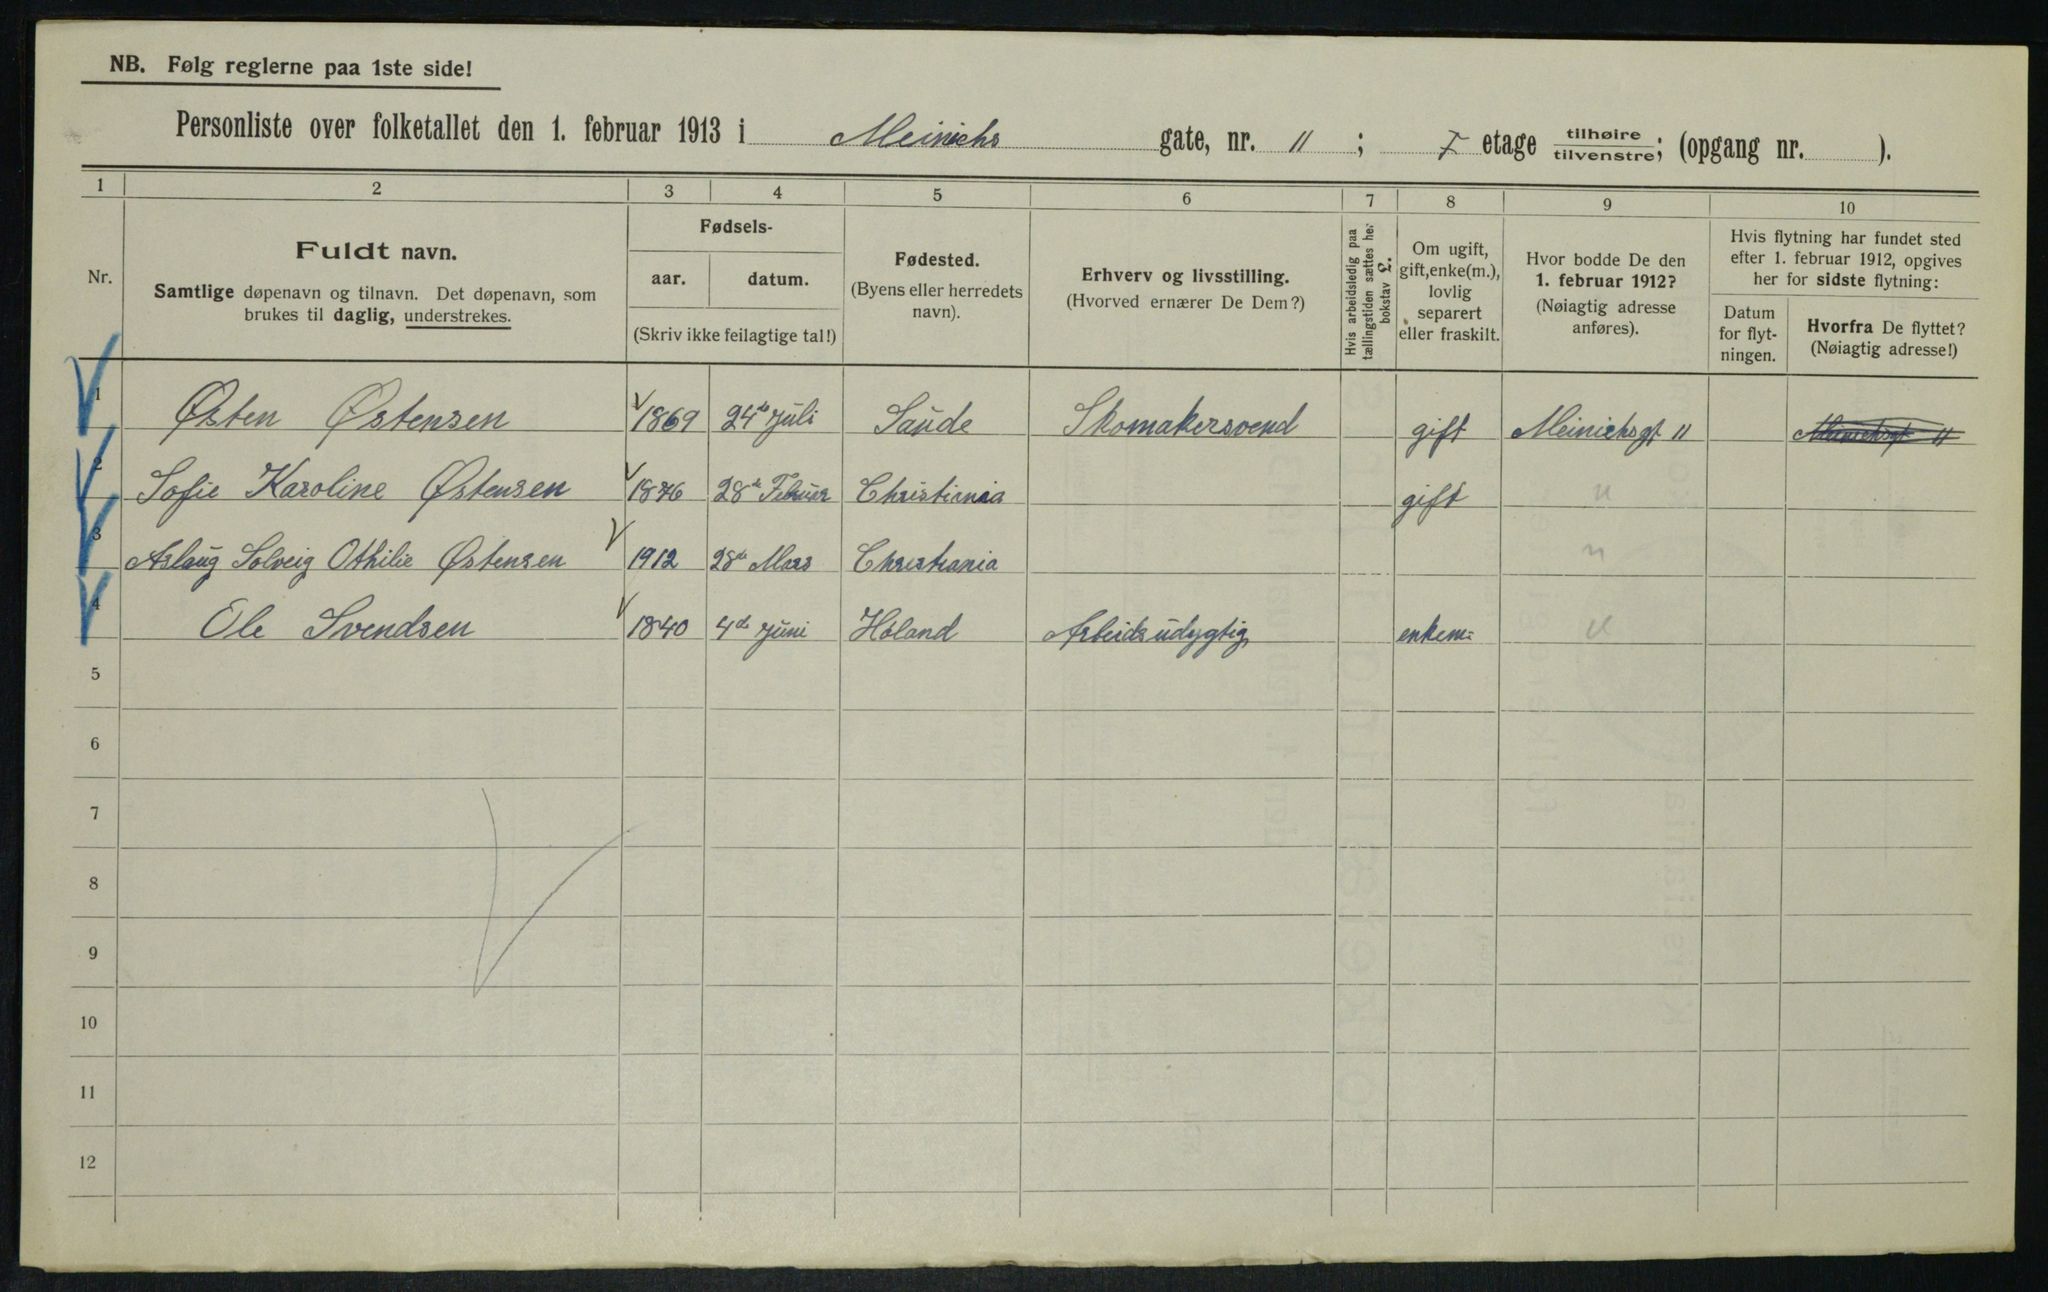 NB. Følg reglerne paa 1ste side!
Personliste over folketallet den 1. februar 1913 i Meinichs gate, nr. 11 ; I etage tilhøire/tilvenstre; (opgang nr. ).
1 2 3 4 5 6 7 8 9 10
Nr.
Fuldt navn.
Samtlige døpenavn og tilnavn. Det døpenavn, som
brukes til daglig, understrekes.
Fødsels-
aar. datum.
(Skriv ikke feilagtige tal!)
Fødested.
(Byens eller herredets
navn).
Erhverv og livsstilling.
(Hvorved ernærer De Dem?)
Hvis arbeidsledig paa
tællingstiden sættes her
bokstav £.
Om ugift,
gift, enke(m.),
lovlig
separert
eller fraskilt.
Hvor bodde De den
1. februar 1912?
(Nøiagtig adresse
anføres).
Hvis flytning har fundet sted
efter 1. februar 1912, opgives
her for sidste flytning:
Datum
for flyt-
ningen.
Hvorfra De flyttet?
(Nøiagtig adresse!)
1 Østen Østensen 1869 24de juli Saude Skomakersvend gift Meinichsgt 11 Meinichsgt 11
2 Sofie Karoline Østensen 1876 28de Februar Christiania gift "
3 Aslaug Solveig Othilie Østensen 1912 28de Mars Christiania "
4 Ole Svendsen 1840 4de juni Høland Arbeidsudygtig enkem: "
5
6
7
8
9
10
11
12